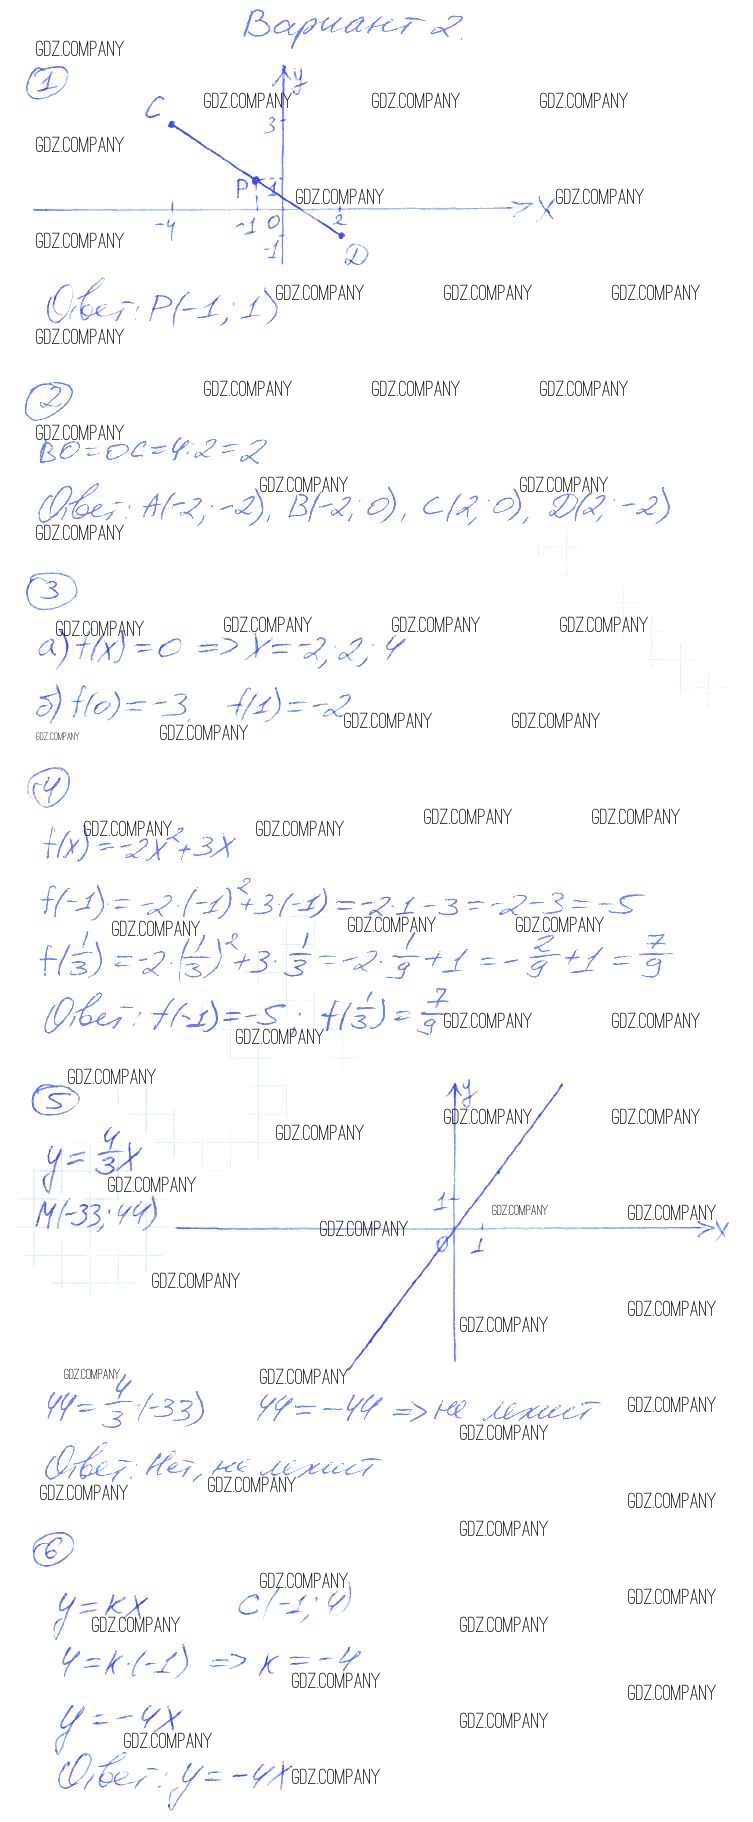 Вариант 2.
GDZ.COMPANY
1
y
C
GDZ.COMPANY GDZ.COMPANY GDZ.COMPANY
3
GDZ.COMPANY
P 1
GDZ.COMPANY GDZ.COMPANY
X
-4 -1 0 2
GDZ.COMPANY
-1
D
GDZ.COMPANY GDZ.COMPANY GDZ.COMPANY
Ответ: P(-1; 1)
GDZ.COMPANY
GDZ.COMPANY GDZ.COMPANY GDZ.COMPANY
2
GDZ.COMPANY
BO=OC=4:2=2
GDZ.COMPANY GDZ.COMPANY
Ответ: A(-2; -2), B(-2; 0), C(2; 0), D(2; -2)
GDZ.COMPANY
3
GDZ.COMPANY GDZ.COMPANY GDZ.COMPANY GDZ.COMPANY
а) f(x)=0 => x=-2; 2; 4
б) f(0)=-3, f(1)=-2
GDZ.COMPANY GDZ.COMPANY
GDZ.COMPANY GDZ.COMPANY
4
GDZ.COMPANY GDZ.COMPANY
GDZ.COMPANY GDZ.COMPANY
f(x)=-2x²+3x
f(-1)=-2·(-1)²+3·(-1)=-2·1-3=-2-3=-5
GDZ.COMPANY GDZ.COMPANY GDZ.COMPANY
f(1/3)=-2·(1/3)²+3·1/3=-2·1/9+1=-2/9+1=7/9
Ответ: f(-1)=-5; f(1/3)=7/9
GDZ.COMPANY GDZ.COMPANY
GDZ.COMPANY
GDZ.COMPANY
5
y
GDZ.COMPANY GDZ.COMPANY
GDZ.COMPANY
y=4/3x
GDZ.COMPANY
1
M(-33; 44)
GDZ.COMPANY GDZ.COMPANY
GDZ.COMPANY
X
0 1
GDZ.COMPANY
GDZ.COMPANY
GDZ.COMPANY
GDZ.COMPANY GDZ.COMPANY
44=4/3·(-33) 44=-44 => не лежит
GDZ.COMPANY
GDZ.COMPANY
Ответ: Нет, не лежит
GDZ.COMPANY GDZ.COMPANY
GDZ.COMPANY
GDZ.COMPANY
6
GDZ.COMPANY
GDZ.COMPANY
y=kx C(-1; 4)
GDZ.COMPANY GDZ.COMPANY
4=k·(-1) => k=-4
GDZ.COMPANY
GDZ.COMPANY
y=-4x
GDZ.COMPANY
GDZ.COMPANY
Ответ: y=-4x
GDZ.COMPANY